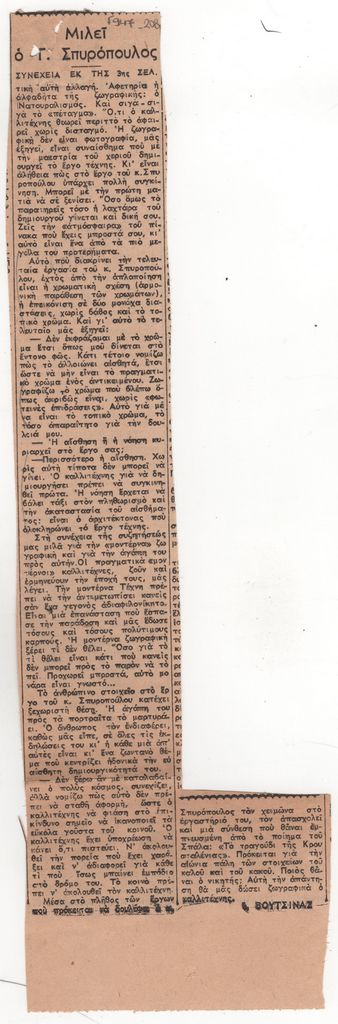 Μιλεῖ
ὁ Γ. Σπυρόπουλος
ΣΥΝΕΧΕΙΑ ΕΚ ΤΗΣ 3ης ΣΕΛ.
τικὴ αὐτὴ ἀλλαγή. Ἀφετηρία ἢ
ἀλφαδῆτα τῆς ζωγραφικῆς: ὁ
Νατουραλισμός. Καὶ σιγὰ-σι-
γὰ τὸ «πέταγμα». Ὅ,τι ὁ καλ-
λιτέχνης θεωρεῖ περιττὸ τὸ ἀφαι-
ρεῖ χωρὶς δισταγμό. Ἡ ζωγρα-
φικὴ δὲν εἶναι φωτογραφία, μᾶς
ἐξηγεῖ, εἶναι συναίσθημα ποὺ μὲ
τὴν μαεστρία τοῦ χεριοῦ δημι-
ουργεῖ τὸ ἔργο τέχνης. Κι' εἶναι
ἀλήθεια πὼς στὸ ἔργο τοῦ κ.Σπυ
ροπούλου ὑπάρχει πολλὴ συγκί-
νηση. Μπορεῖ μὲ τὴν πρώτη μα-
τιὰ νὰ σὲ ξενίσει. Ὅσο ὅμως τὸ
παρατηρεῖς τόσο ἡ λαχτάρα τοῦ
δημιουργοῦ γίνεται καὶ δική σου.
Ζεῖς τὴν «ἀτμόσφαιρα» τοῦ πί-
νακα ποὺ ἔχεις μπροστά σου, κι'
αὐτὸ εἶναι ἕνα ἀπὸ τὰ πιὸ με-
γάλα του προτερήματα.
Αὐτὸ ποὺ διακρίνει τὴν τελευ-
ταία ἐργασία τοῦ κ. Σπυροπού-
λου, ἐκτὸς ἀπὸ τὴν ἁπλοποίηση
εἶναι ἡ χρωματικὴ σχέση (ἁρμο-
νικὴ παράθεση τῶν χρωμάτων),
ἡ ἀπεικόνιση σὲ δύο μονάχα δια-
στάσεις, χωρὶς βάθος καὶ τὸ το-
πικὸ χρῶμα. Καὶ γι' αὐτὸ τὸ τε-
λευταῖο μᾶς ἐξηγεῖ:
— Δὲν ἐκφράζομαι μὲ τὸ χρῶ-
μα ἔτσι ὅπως μοῦ δίνεται στὸ
ἔντονο φῶς. Κάτι τέτοιο νομίζω
πὼς τὸ ἀλλοιώνει αἰσθητά, ἔτσι
ὥστε νὰ μὴν εἶναι τὸ πραγματι-
κὸ χρῶμα ἑνὸς ἀντικειμένου. Ζω-
γραφίζω τὸ χρῶμα ποὺ βλέπω ὅ-
πως ἀκριβῶς εἶναι, χωρὶς «φω-
τεινὲς ἐπιδράσεις». Αὐτὸ γιὰ μέ-
να εἶναι τὸ τοπικὸ χρῶμα, τὸ
τόσο ἀπαραίτητο γιὰ τὴν δου-
λειά μου.
— Ἡ αἴσθηση ἢ ἡ νόηση κυ-
ριαρχεῖ στὸ ἔργο σας;
—Περισσότερο ἡ αἴσθηση. Χω-
ρὶς αὐτὴ τίποτα δὲν μπορεῖ νὰ
γίνει. Ὁ καλλιτέχνης γιὰ νὰ δη-
μιουργήσει πρέπει νὰ συγκινη-
θεῖ πρῶτα. Ἡ νόηση ἔρχεται νὰ
βάλει τάξι στὸν πληθωρισμὸ καὶ
τὴν ἀκαταστασία τοῦ αἰσθήμα-
τος: εἶναι ὁ ἀρχιτέκτονας ποὺ
ὁλοκληρώνει τὸ ἔργο τέχνης.
Στὴ συνέχεια τῆς συζητήσεώς
μας μιλᾶ γιὰ τὴν «μοντέρνα» ζω
γραφικὴ καὶ γιὰ τὴν ἀγάπη του
πρὸς αὐτήν.Οἱ πραγματικὰ «μον
τέρνοι» καλλιτέχνες, ζοῦν καὶ
ἑρμηνεύουν τὴν ἐποχή τους, μᾶς
λέγει. Τὴν μοντέρνα Τέχνη πρέ-
πει νὰ τὴν ἀντιμετωπίσει κανεὶς
σὰν ἕνα γεγονὸς ἀδιαφιλονίκητο.
Εἶναι μιὰ ἐπανάσταση ποὺ ἔσπα-
σε τὴν παράδοση καὶ μᾶς ἔδωσε
τόσους καὶ τόσους πολύτιμους
καρπούς. Ἡ μοντέρνα ζωγραφικὴ
ξέρει τὶ δὲν θέλει. Ὅσο γιὰ τὸ
τὶ θέλει εἶναι κάτι ποὺ κανεὶς
δὲν μπορεῖ πρὸς τὸ παρὸν νὰ τὸ
πεῖ. Προχωρεῖ μπροστά, αὐτὸ μο
νάχα εἶναι γνωστό...
Τὸ ἀνθρώπινο στοιχεῖο στὸ ἔρ
γο τοῦ κ. Σπυροπούλου κατέχει
ξεχωριστὴ θέση. Ἡ ἀγάπη του
πρὸς τὰ πορτραῖτα τὸ μαρτυρά-
ει. Ὁ ἄνθρωπος τὸν ἐνδιαφέρει,
καθὼς μᾶς εἶπε, σὲ ὅλες τὶς ἐκ-
δηλώσεις του κι' ἡ κάθε μιὰ ἀπ'
αὐτὲς εἶναι κι' ἕνα ζωντανὸ θέ-
μα ποὺ κεντρίζει ἡδονικὰ τὴν εὐ
αίσθητη δημιουργικότητά του.
— Δὲν ξέρω ἂν μὲ καταλαβαί-
νει ὁ πολὺς κόσμος, συνεχίζει,
ἀλλὰ νομίζω πὼς αὐτὸ δὲν πρέ-
πει νὰ σταθῇ ἀφορμή, ὥστε ὁ
καλλιτέχνης νὰ φτιάση στὸ ἐπι-
κίνδυνο σημεῖο νὰ ἱκανοποιεῖ τὰ
εὔκολα γοῦστα τοῦ κοινοῦ. Ὁ
καλλιτέχνης ἔχει ὑποχρέωση νὰ
κάνει ὅ,τι πιστεύει. Ν' ἀκολου-
θεῖ τὴν πορεία ποὺ ἔχει χαρά-
ξει καὶ ν' ἀδιαφορεῖ γιὰ κάθε
τὶ ποὺ ἴσως μπαίνει ἐμπόδιο
στὸ δρόμο του. Τὸ κοινὸ πρέ-
πει ν' ἀκολουθεῖ τὸν καλλιτέχνη.
Μέσα στὸ πλῆθος τῶν ἔργων
ποὺ πρόκειται νὰ δουλέψῃ ὁ κ.
Σπυρόπουλος τὸν χειμῶνα στὸ
ἐργαστήριό του, τὸν ἀπασχολεῖ
καὶ μιὰ σύνθεση ποὺ θἆναι ἐμ-
πνευσμένη ἀπὸ τὸ ποίημα τοῦ
Σπάλα: «Τὸ τραγούδι τῆς Κρου
σταλένιας». Πρόκειται γιὰ τὴν
αἰώνια πάλη τῶν στοιχείων τοῦ
καλοῦ καὶ τοῦ κακοῦ. Ποιὸς θἆ-
ναι ὁ νικητής; Αὐτὴ τὴν ἀπάντη-
ση θὰ μᾶς δώσει ζωγραφικὰ ὁ
καλλιτέχνης.
ΒΟΥΤΣΙΝΑΣ